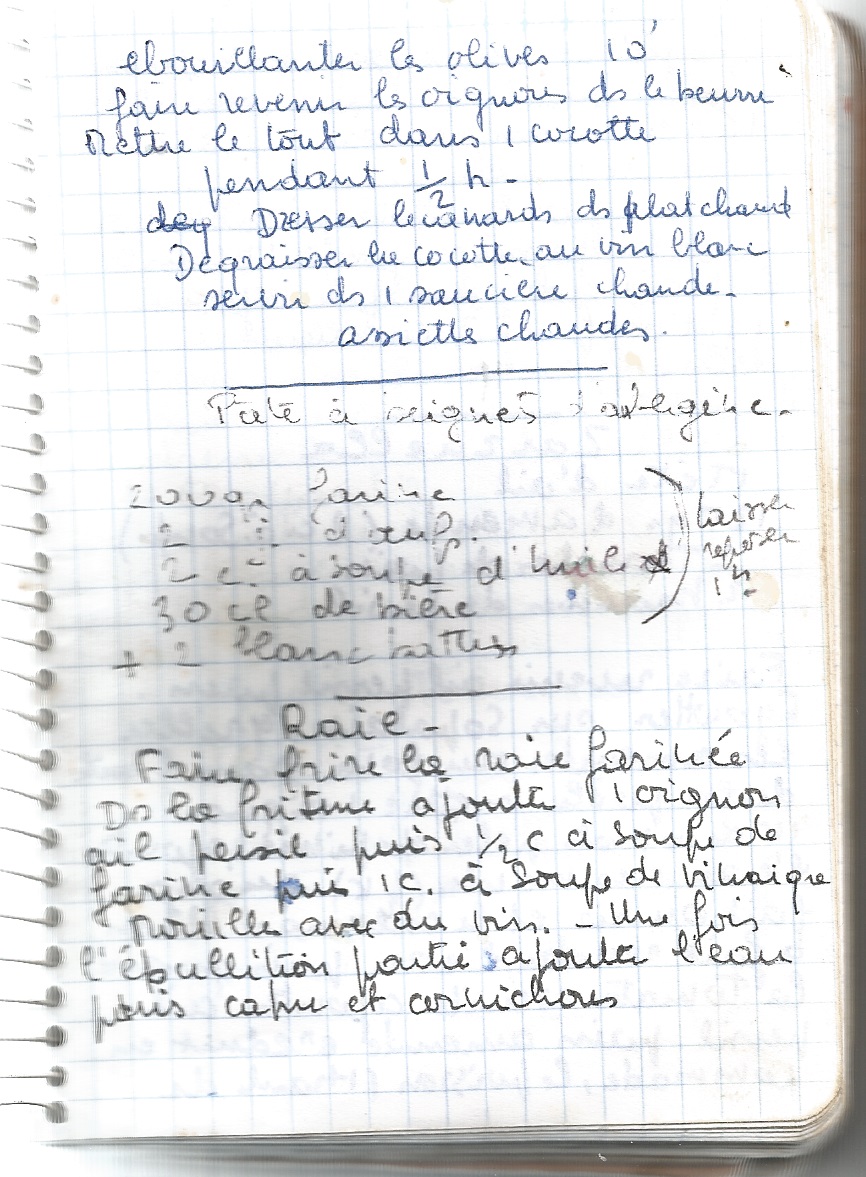 ebouillanter les olives 10'
faire revenir les oignons ds le beurre
Mettre le tout dans 1 cocotte
pendant 1/2 h -
Dresser le canards ds plat chaud
Dégraisser la cocotte au vin blanc
servir ds 1 saucière chaude -
assiettes chaudes.
Pâte à beignets d'aubergine -
200 gr farine
2 j d'oeuf.
2 c. à soupe d'huile
30 cl de bière
+ 2 blanc battus
laisser
reposer
1 h
Raie -
Faire frire la raie farinée
Ds la friture ajouter 1 oignon
ail persil puis 1/2 c à soupe de
farine puis 1 c. à soupe de vinaigre
Mouiller avec du vin. - Une fois
l'ébullition partie ajouter l'eau
puis capre et cornichons